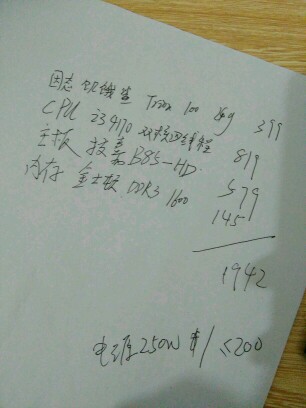 固态 饥饿鲨 Trion 100 399
CPU i3 4170 双核四线程 819
主板 技嘉 B85-HD 579
内存 金士顿 DDR3 1600 145
1942
电源 250W ≤200